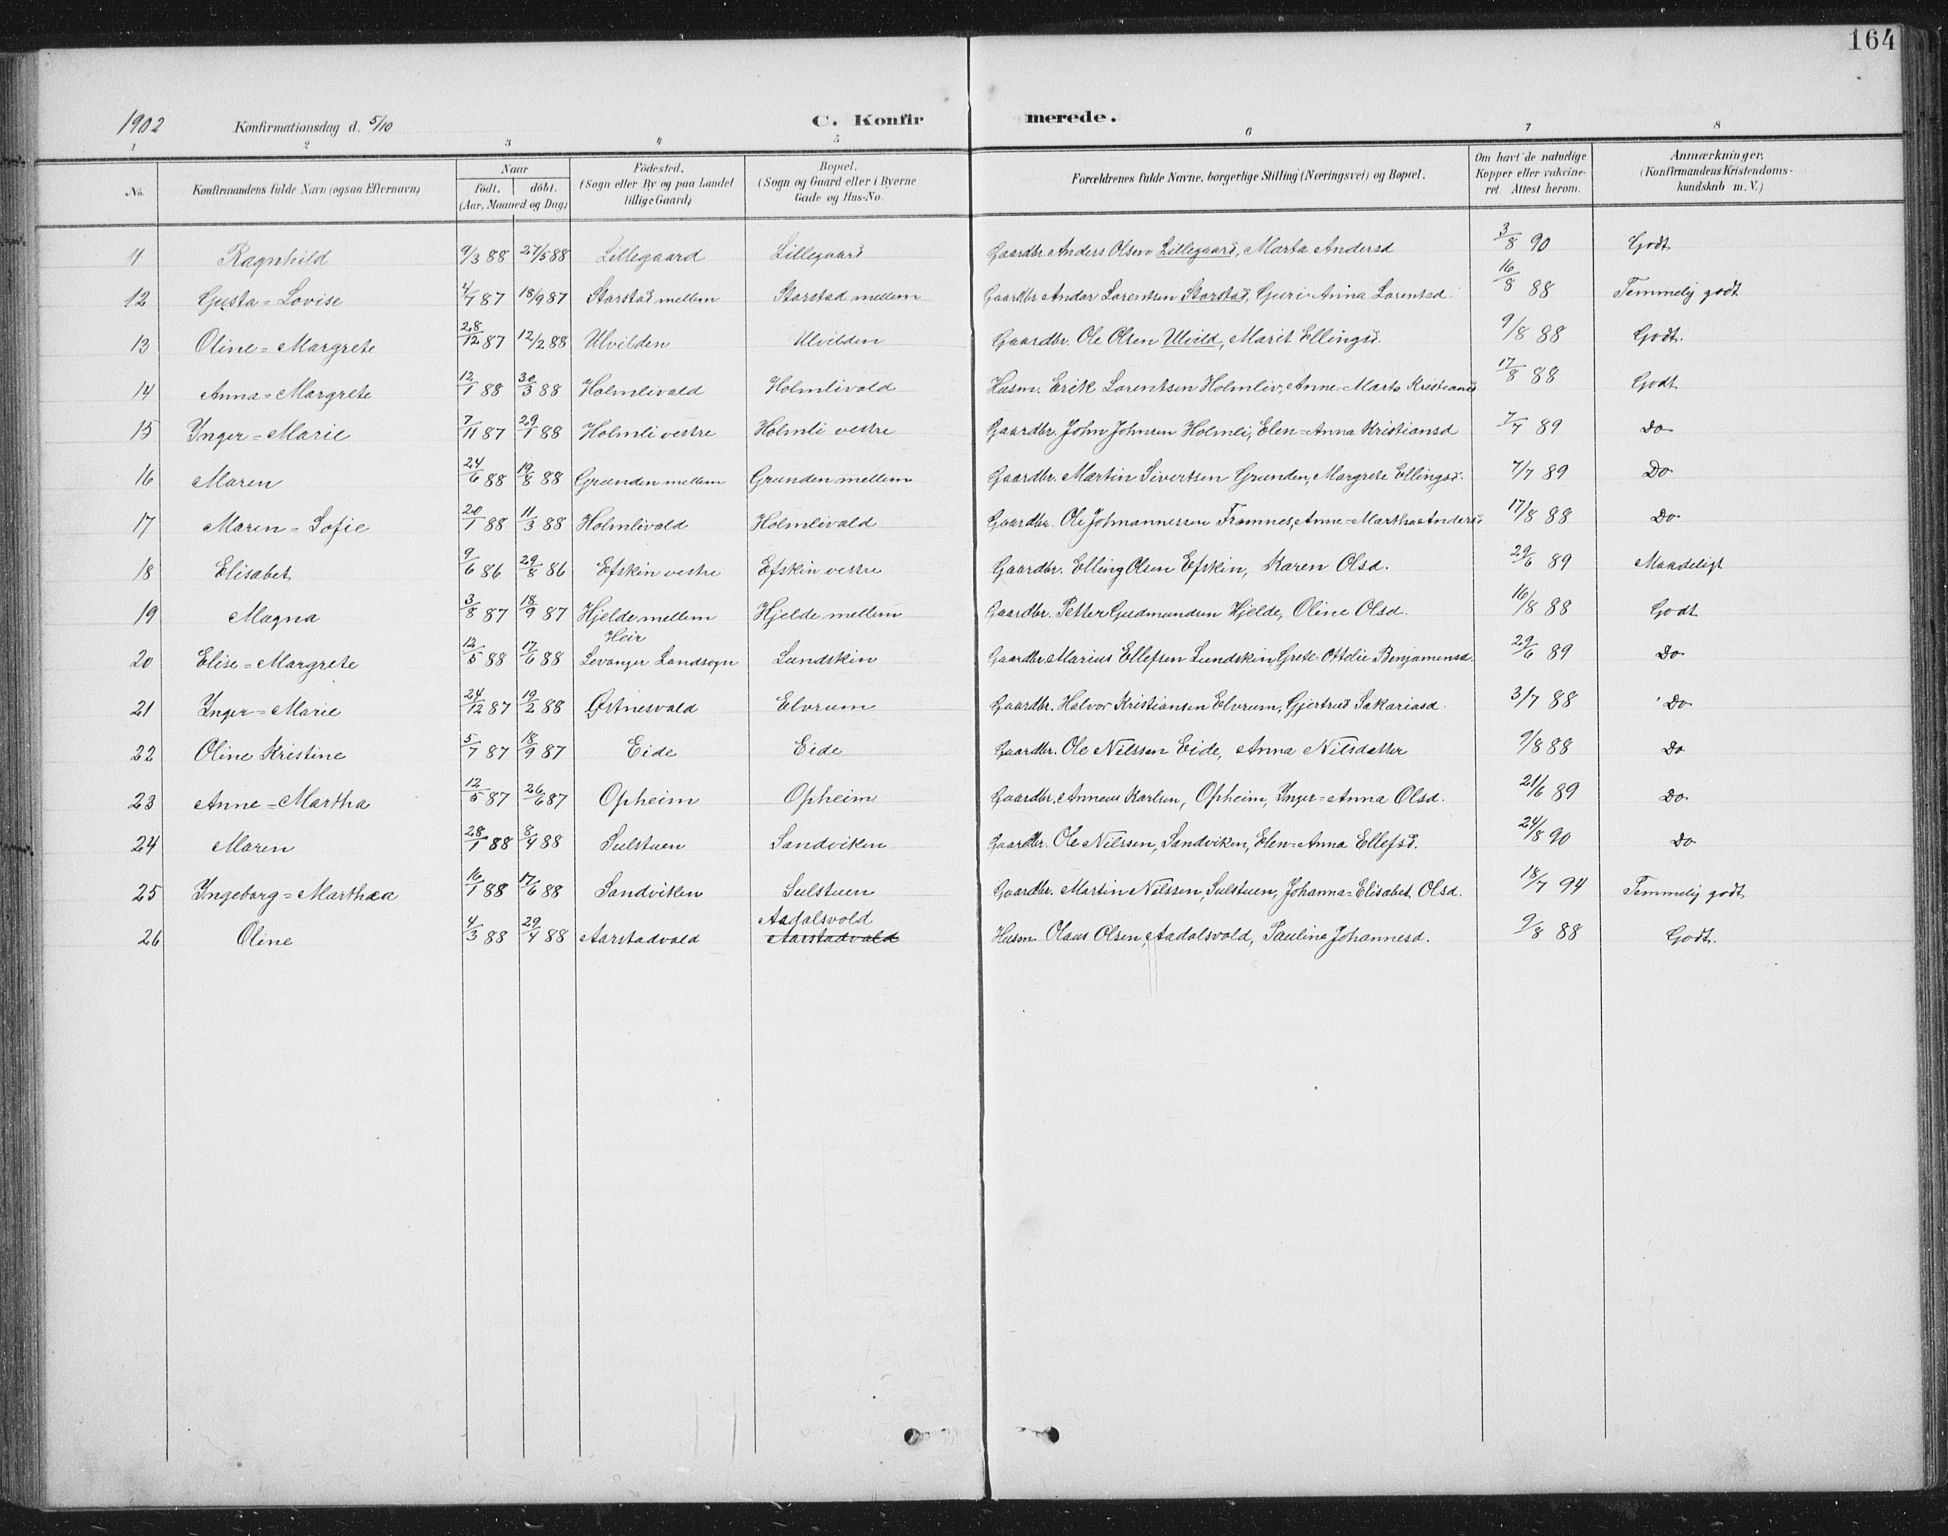 164
1902 Konfirmationsdag d. 5/10 C. Konfirmerede.
1 2 3 4 5 6 7 8
No. Konfirmandens fulde Navn (ogsaa Efternavn) Naar födt. döbt. (Aar, Maaned og Dag) Födested. (Sogn eller By og paa Landet tillige Gaard) Bopæl. (Sogn og Gaard eller i Byerne Gade og Hus-No. Forældrenes fulde Navne, borgerlige Stilling (Næringsvei) og Bopæl. Om havt de naturlige Kopper eller vakcineret. Attest herom. Anmærkninger. (Konfirmandens Kristendomskundskab m. V.)
11 Ragnhild 9/3 88 27/5 88 Lillegaard Lillegaard Gaardbr. Anders Olsen Lillegaard, Marta Andersd 3/8 90 Godt
12 Gusta=Lovise 4/7 87 18/9 87 Storstad mellem Storstad mellem Gaardbr. Andor Lorentsen Storstad, Guri-Anna Lorentsd. 16/8 88 Temmelig godt
13 Oline=Margrete 28/12 87 12/2 88 Ulvilden Ulvilden Gaardbr. Ole Olsen Ulvild, Marit Ellingsd. 9/8 88 Godt.
14 Anna=Margrete 12/1 88 30/3 88 Holmlivald Holmlivald Husm. Erik Lorentsen Holmliv, Anne-Marta Kristiansd 17/8 88 Godt
15 Inger=Marie 7/11 87 29/1 88 Holmli vestre Holmli vestre Gaardbr. John Johnsen Holmli, Elen-Anna Kristiansd 7/7 89 Do
16 Maren 24/6 88 19/8 88 Grunden mellem Grunden mellem Gaardbr. Martin Sivertsen Grunden, Margrete Ellingsd. 7/7 89 Do
17 Maren=Sofie 20/1 88 11/3 88 Holmlivald Holmlivald Gaardbr. Ole Johannessen Framnes, Anne-Martha Andersd 17/8 88 Do
18 Elisabet 9/6 86 29/8 86 Efskin vestre Efskin vestre Gaardbr. Elling Olsen Efskin, Karen Olsd. 29/6 89 Maadeligt
19 Magna 3/8 87 18/9 87 Hjelde mellem Hjelde mellem Gaardbr. Petter Gudmundsen Hjelde, Oline Olsd. 16/8 88 Godt
20 Elise=Margrete 12/5 88 17/6 88 Heir Levanger Landsogn Lundskin Gaardbr. Marius Ellefsen Lundskin, Grete-Ottelie Benjamensd. 29/6 89 Do
21 Inger=Marie 24/12 87 19/2 88 Østnesvald Elvrum Gaardbr. Halvor Kristiansen Elvrum, Gjertrud Sakariasd. 3/7 88 Do
22 Oline Kristine 5/7 87 18/9 87 Eide Eide Gaardbr. Ole Nilssen Eide, Anna Nilsdatter 9/8 88 Do
23 Anne=Martha 12/5 87 26/6 87 Opheim Opheim Gaardbr. Karlsen, Opheim, Inger=Anna Olsd. 21/6 89 Do
24 Maren 28/1 88 8/4 88 Sulstuen Sandviken Gaardbr. Ole Nilssen, Sandviken, Elen=Anna Ellefsd. 24/8 90 Do
25 Ingeborg=Marthea 16/1 88 17/6 88 Sandviken Sulstuen Gaardbr. Martin Nilssen, Sulstuen, Johanna=Elisabet Olsd. 18/7 94 Temmelig godt
26 Oline 4/3 88 29/4 88 Aarstadvald Aadalsvold Aarstadvald Husm. Olaus Olsen, Aadalsvold, Pauline Johannesd. 9/8 88 Godt.